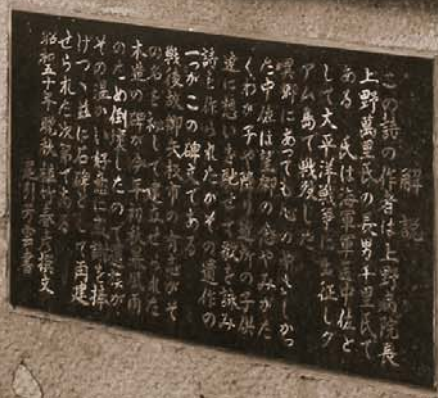 解説
この詩の作者は上野病院長
上野萬里氏の長男千里氏で
ある 氏は海軍軍医中佐と
して太平洋戦争に出征しグ
アム島で戦歿した
異郷にあっても心のやさしかっ
た中佐は望郷の念やみがた
くわが子や隣り近所の子供
達に想いを馳せて歌を詠み
詩を作られたがその遺作の
一つがこの碑文である
戦後 有志がそ
の名を して建立せられた
木造の碑が
のため倒壊したので遺族が
その温かい好意に感謝を捧
げつつ茲に石碑として再建
せられた次第である
昭和五十年晩秋 撰文
書